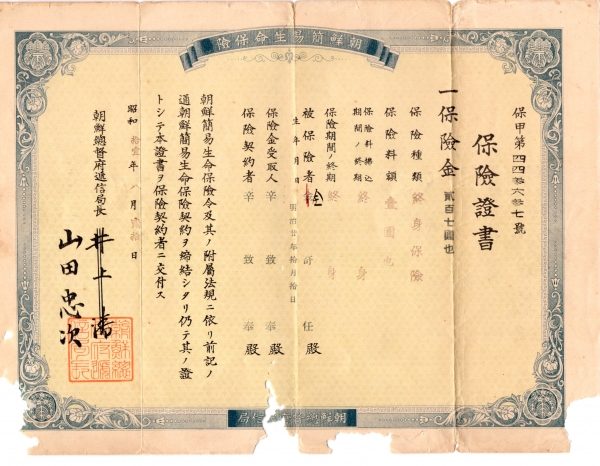 朝鮮簡易生命保險
保甲第四四參六參七號
保險證書
一保險金 貳百七圓也
保險種類 終身保險
保險料額 壹圓也
保險料拂込期間ノ終期 終身
保險期間ノ終期 終身
被保險者 許 任殿
生年月日 明治廿年拾月拾日
保險金受取人 辛致奉殿
保險契約者 辛致奉殿
朝鮮簡易生命保險令及其ノ附屬法規ニ依リ前記ノ
通朝鮮簡易生命保險契約ヲ締結シタリ仍テ其ノ證
トシテ本證書ヲ保險契約者ニ交付ス
昭和拾壹年八月貳拾日
朝鮮總督府遞信局長 井上
山田忠次
朝鮮總
信局